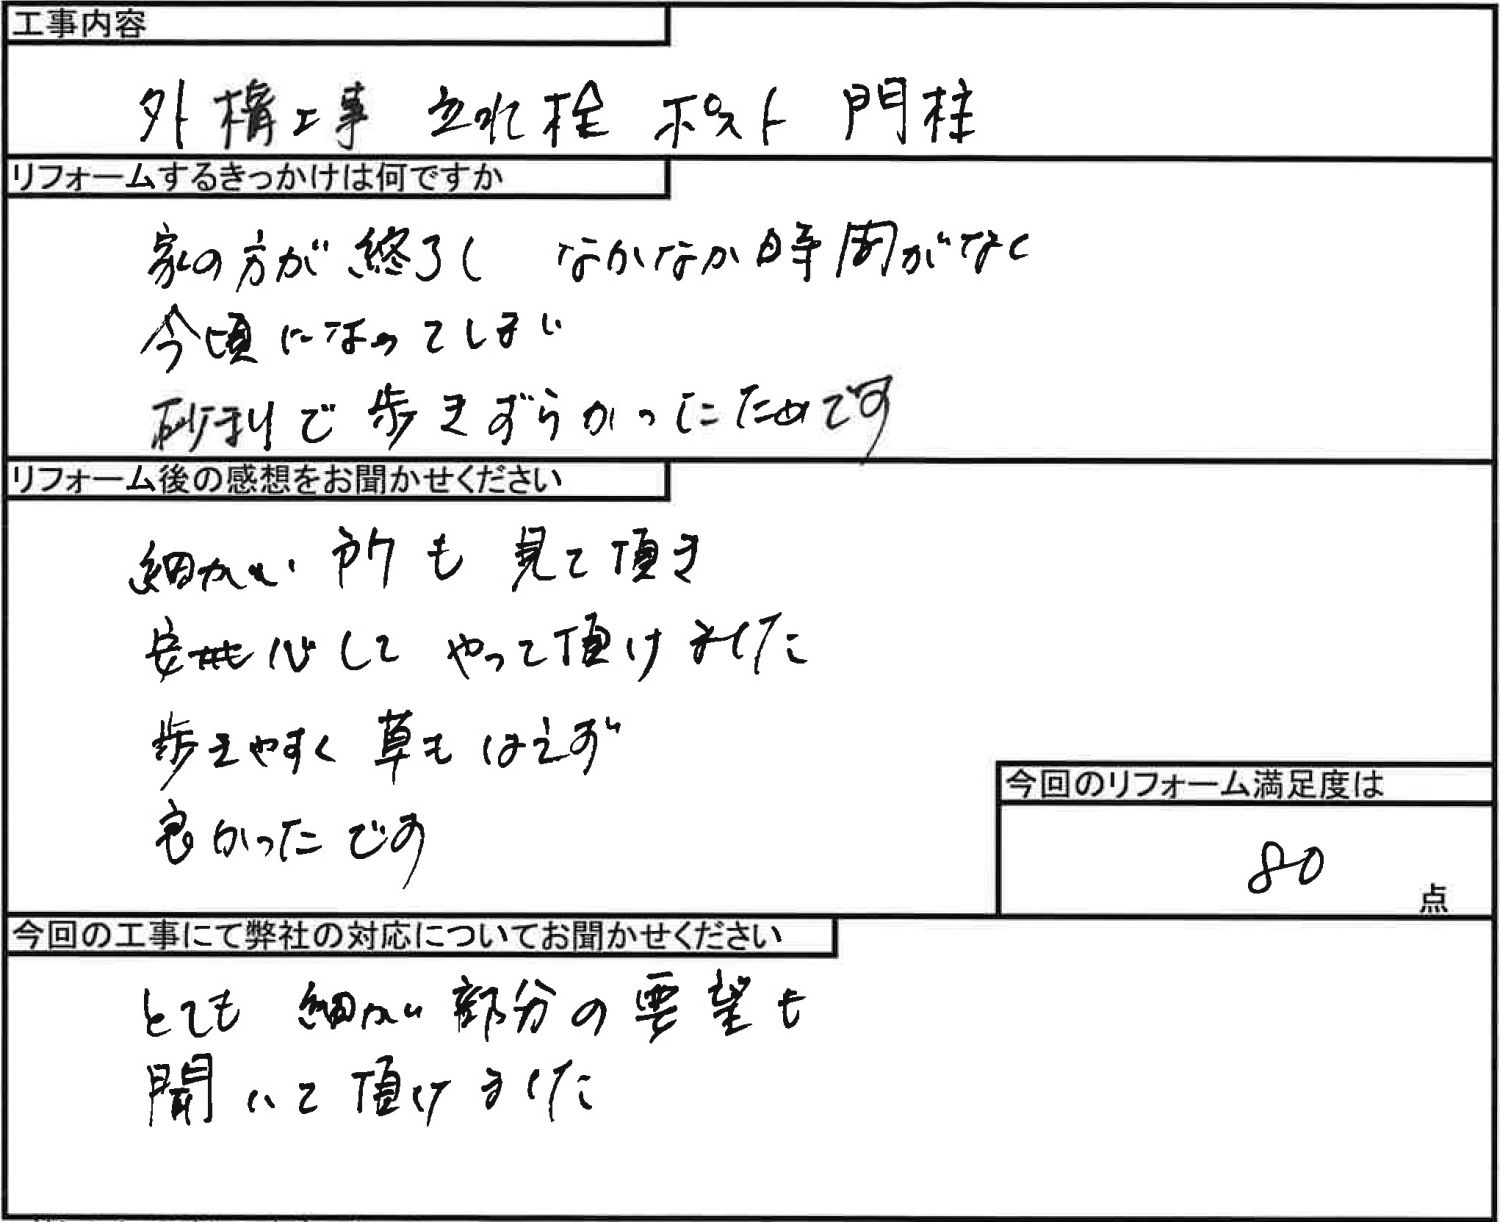 工事内容
外構工事 立水栓 ポスト 門柱
リフォームするきっかけは何ですか
家の方が終了し なかなか時間がなく
今頃になってしまい
砂利で歩きずらかったためです
リフォーム後の感想をお聞かせください
細かい所も見て頂き
安心してやって頂けました
歩きやすく草もはえず
良かったです
今回のリフォーム満足度は
80
点
今回の工事にて弊社の対応についてお聞かせください
とても細かい部分の要望も
聞いて頂けました